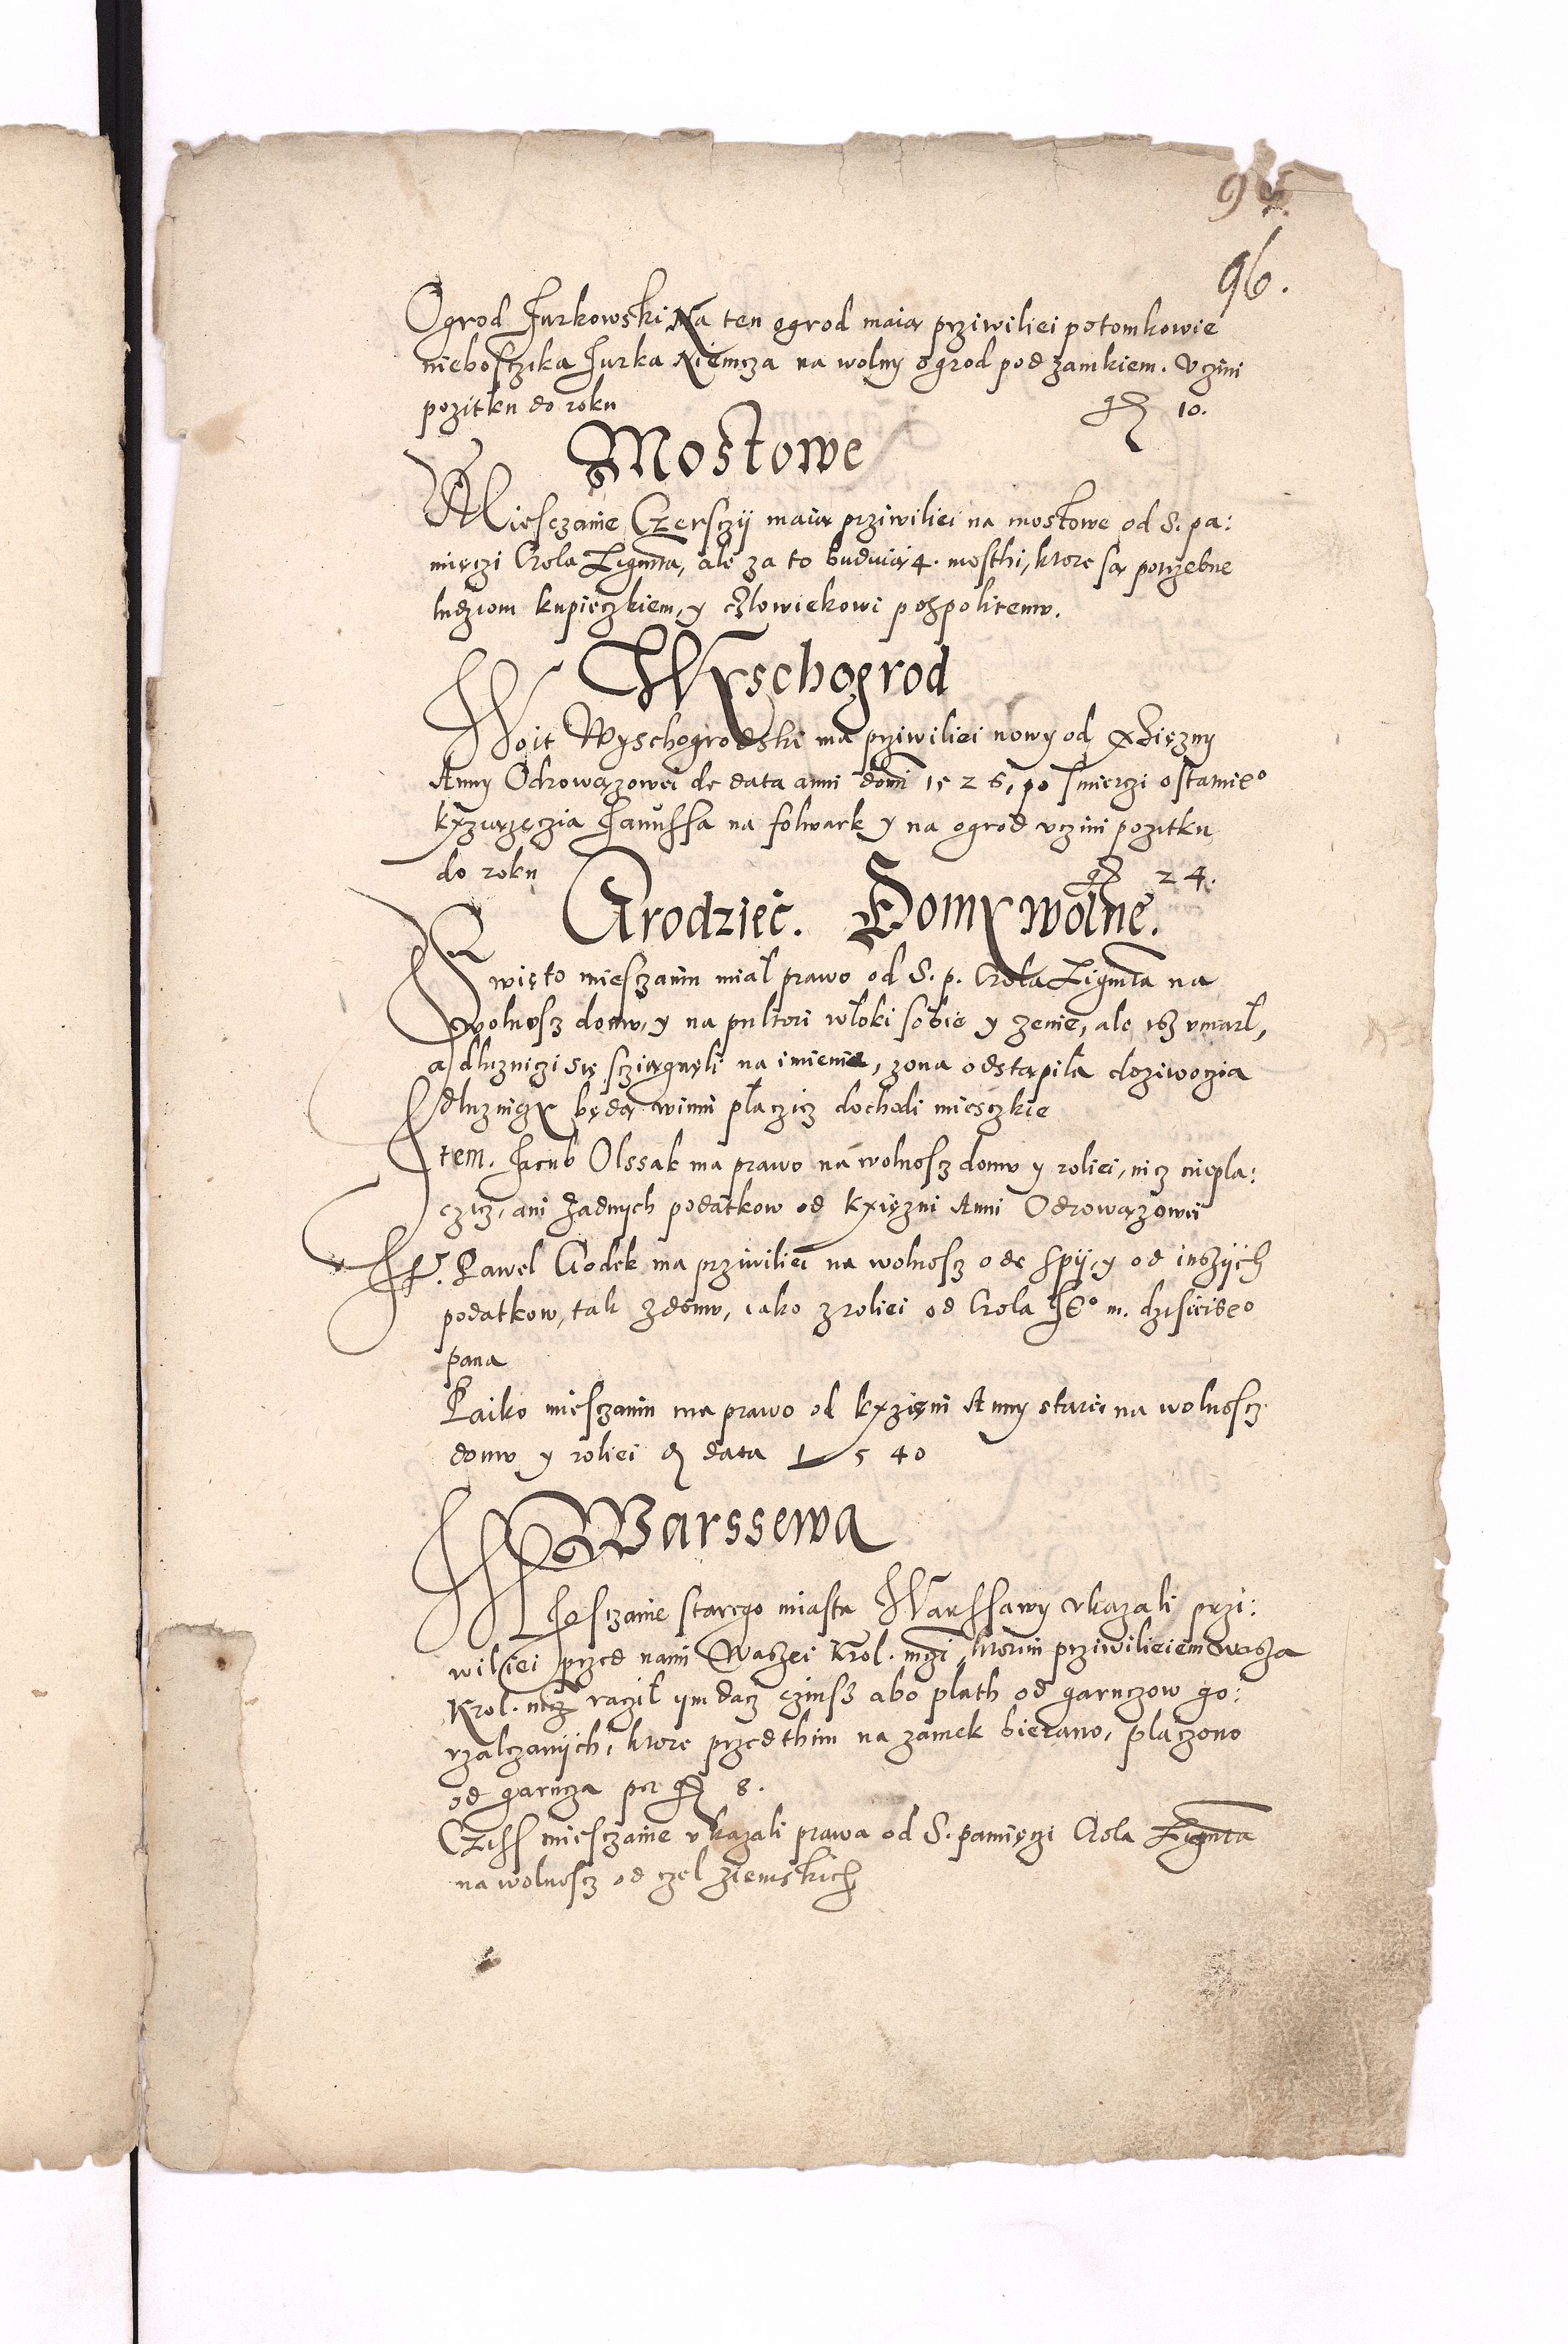 96.
96.
Ogrod Jurkowski Na ten ogrod maią prziwiliei potomkowie
nieboſczika Jurka Niemcza na wolny ogrod pod zamkiem. Vczini
pozitku do roku gr 10.
Mostowe
Mieſczanie Czerſczij maią prziwiliei na mostowe od S. pa:
mięczi Crola Zigmta, ale za to buduią 4. mosthi, ktore ſą potrzebne
ludziom kupieczkiem, y człowiekowi poſpolitemv.
Wyschogrod
Woit Wyschogrodski ma prziwiliei nowy od xzięzny
Anny Odrowązowei de data anni domi 1526, po ſmierczi oſtatnieo
kxzıązęczia Januſſa na folwark y na ogrod vczini pozıtku
do roku gr 24.
Grodziec. Domy wolne.
Swięto mieſzanin miał prawo od S. p. Crola Zigmta na
wolnoſcz domv, y na pultori włoki sobie y zenie, ale isz vmarł,
a dłuzniczi się ſcziągnęli na imienia, zona odstąpiła doziwoczia
dłuzniczy będą winni płaczicz dochodi mieſczkie
Item. Jacub Olssak ma prawo na wolnoſcz domv y roliei, nicz niepła:
czicz, ani żadnych podatkow od kxięzni Anni Odrowązowei
It. Paweł Godek ma prziwiliei na wolnoſcz ode ſpij, y od inszijch
podatkow, tak z domv, iako z roliei od Crola JEo m. dziſieiſeo
pana
Paiko mieſczanin ma prawo od kxzięni Anny starei na wolnoſcz
domv y roliei de data 1540
Warssewa
Mieſczanie starego miasta Warſſawy vkazali przi:
wiliei przed nami Waszei Krol. mczi, ktorim prziwilieiem wasza
Krol. mcz racził ym dacz czinſz abo płath od garnczow go:
rzalczanijch, ktore przedthim na zamek bierano, płaczono
od garncza per gr 8.
Cziſſ mieſczanie vkazali prawa od S. pamięczi Crola Zigmta
na wolnoſcz od czel ziemskich